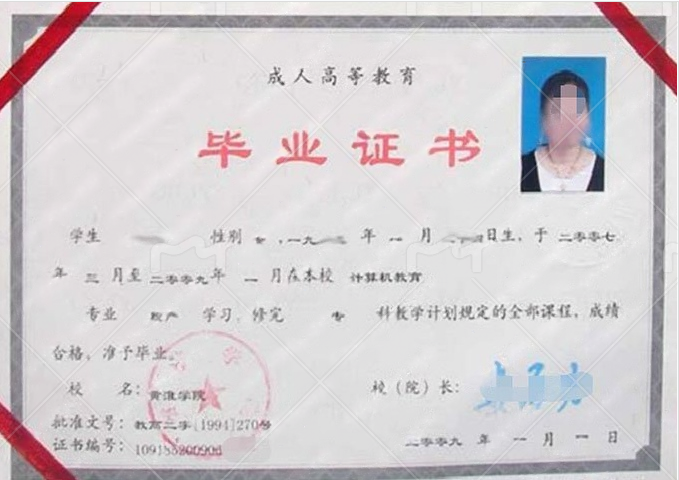 成人高等教育
毕业证书
学生 性别 ,一九 年 月 日生,于 二〇〇七
年 三 月至 二〇〇九 年 一 月在本校 计算机教育
专业 脱产 学习,修完 专 科教学计划规定的全部课程,成绩
合格,准予毕业。
校 名: 黄淮学院 校(院)长:
批准文号: 教高二字[1994]270号
证书编号: 109185200906 二〇〇九 年 一 月 一 日